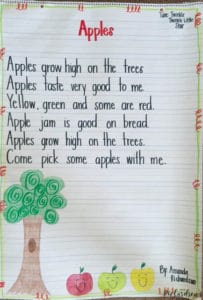 Tune: Twinkle
Twinkle Little
Star
Apples
Apples grow high on the trees
Apples taste very good to me.
Yellow, green and some are red.
Apple jam is good on bread.
Apples grow high on the trees.
Come pick some apples with me.
By: Amanda
Richardson